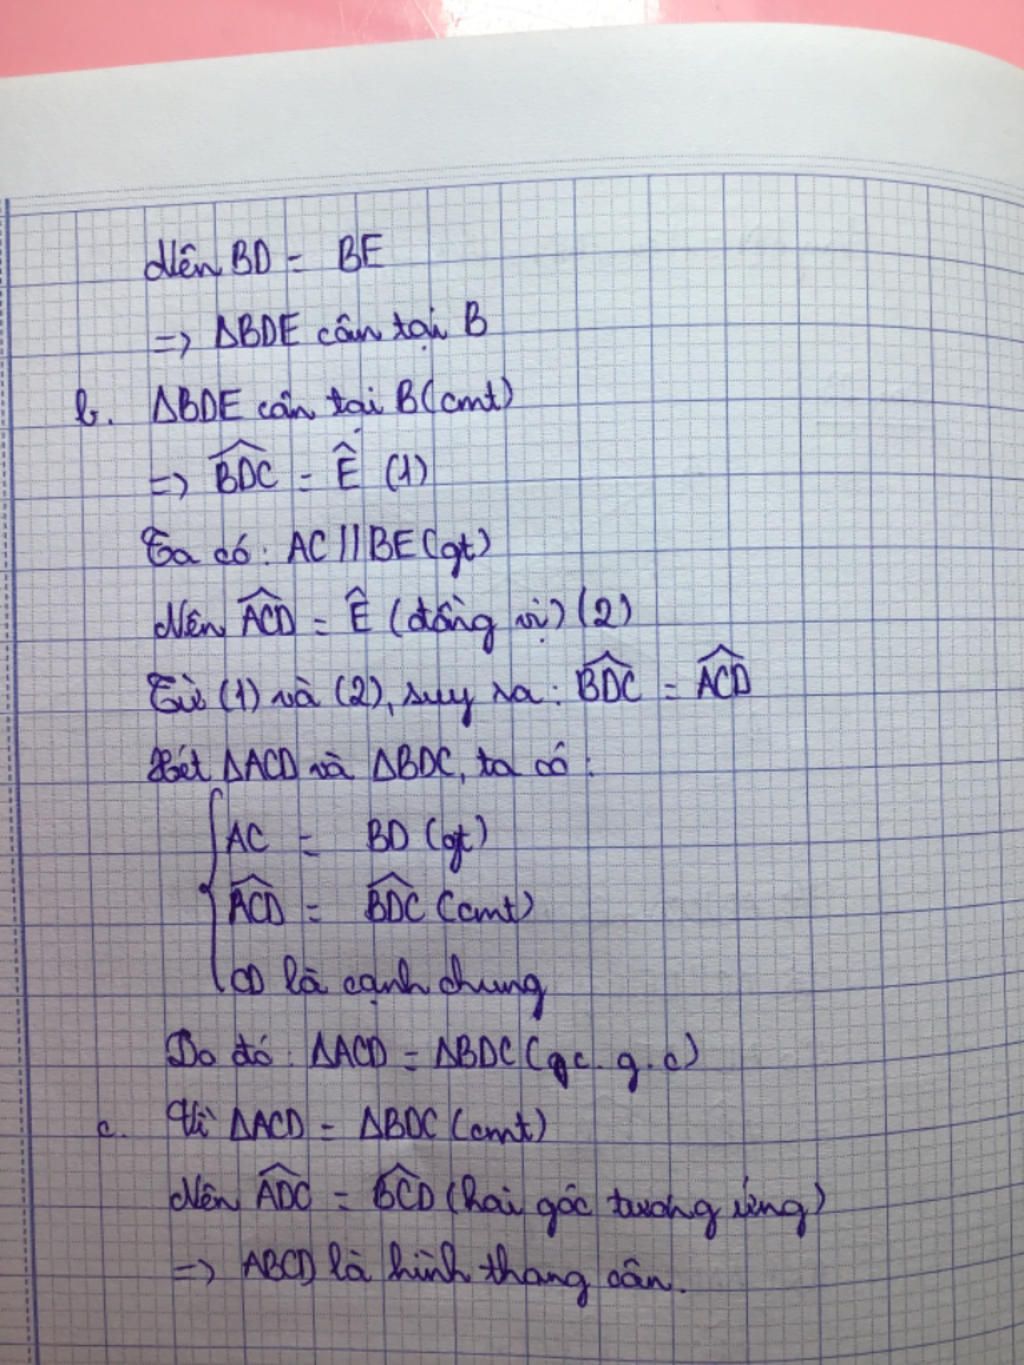 Nên BD = BE
=> ΔBDE cân tại B
b. ΔBDE cân tại B (cmt)
=> \widehat{BDC} = \widehat{E} (1)
Ta có: AC // BE (gt)
Nên \widehat{ACD} = \widehat{E} (đồng vị) (2)
Từ (1) và (2), suy ra: \widehat{BDC} = \widehat{ACD}
Xét ΔACD và ΔBDC, ta có:
AC = BD (gt)
\widehat{ACD} = \widehat{BDC} (cmt)
CD là cạnh chung
Do đó: ΔACD = ΔBDC (c. g. c)
c. Vì ΔACD = ΔBDC (cmt)
Nên \widehat{ADC} = \widehat{BCD} (hai góc tương ứng)
=> ABCD là hình thang cân.